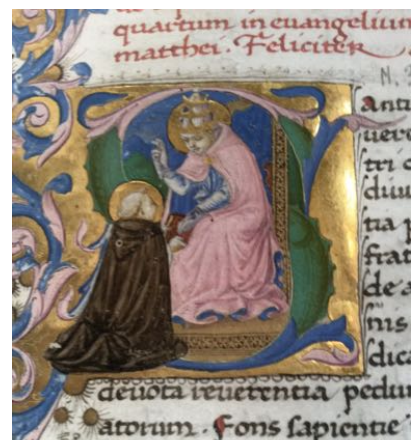 quartum in euangelium
matthei. Feliciter
Anti
uere
tri c
tia p
frat
de a
nis
dica
deuota reuerentia pedu
atorum. Fons sapientie